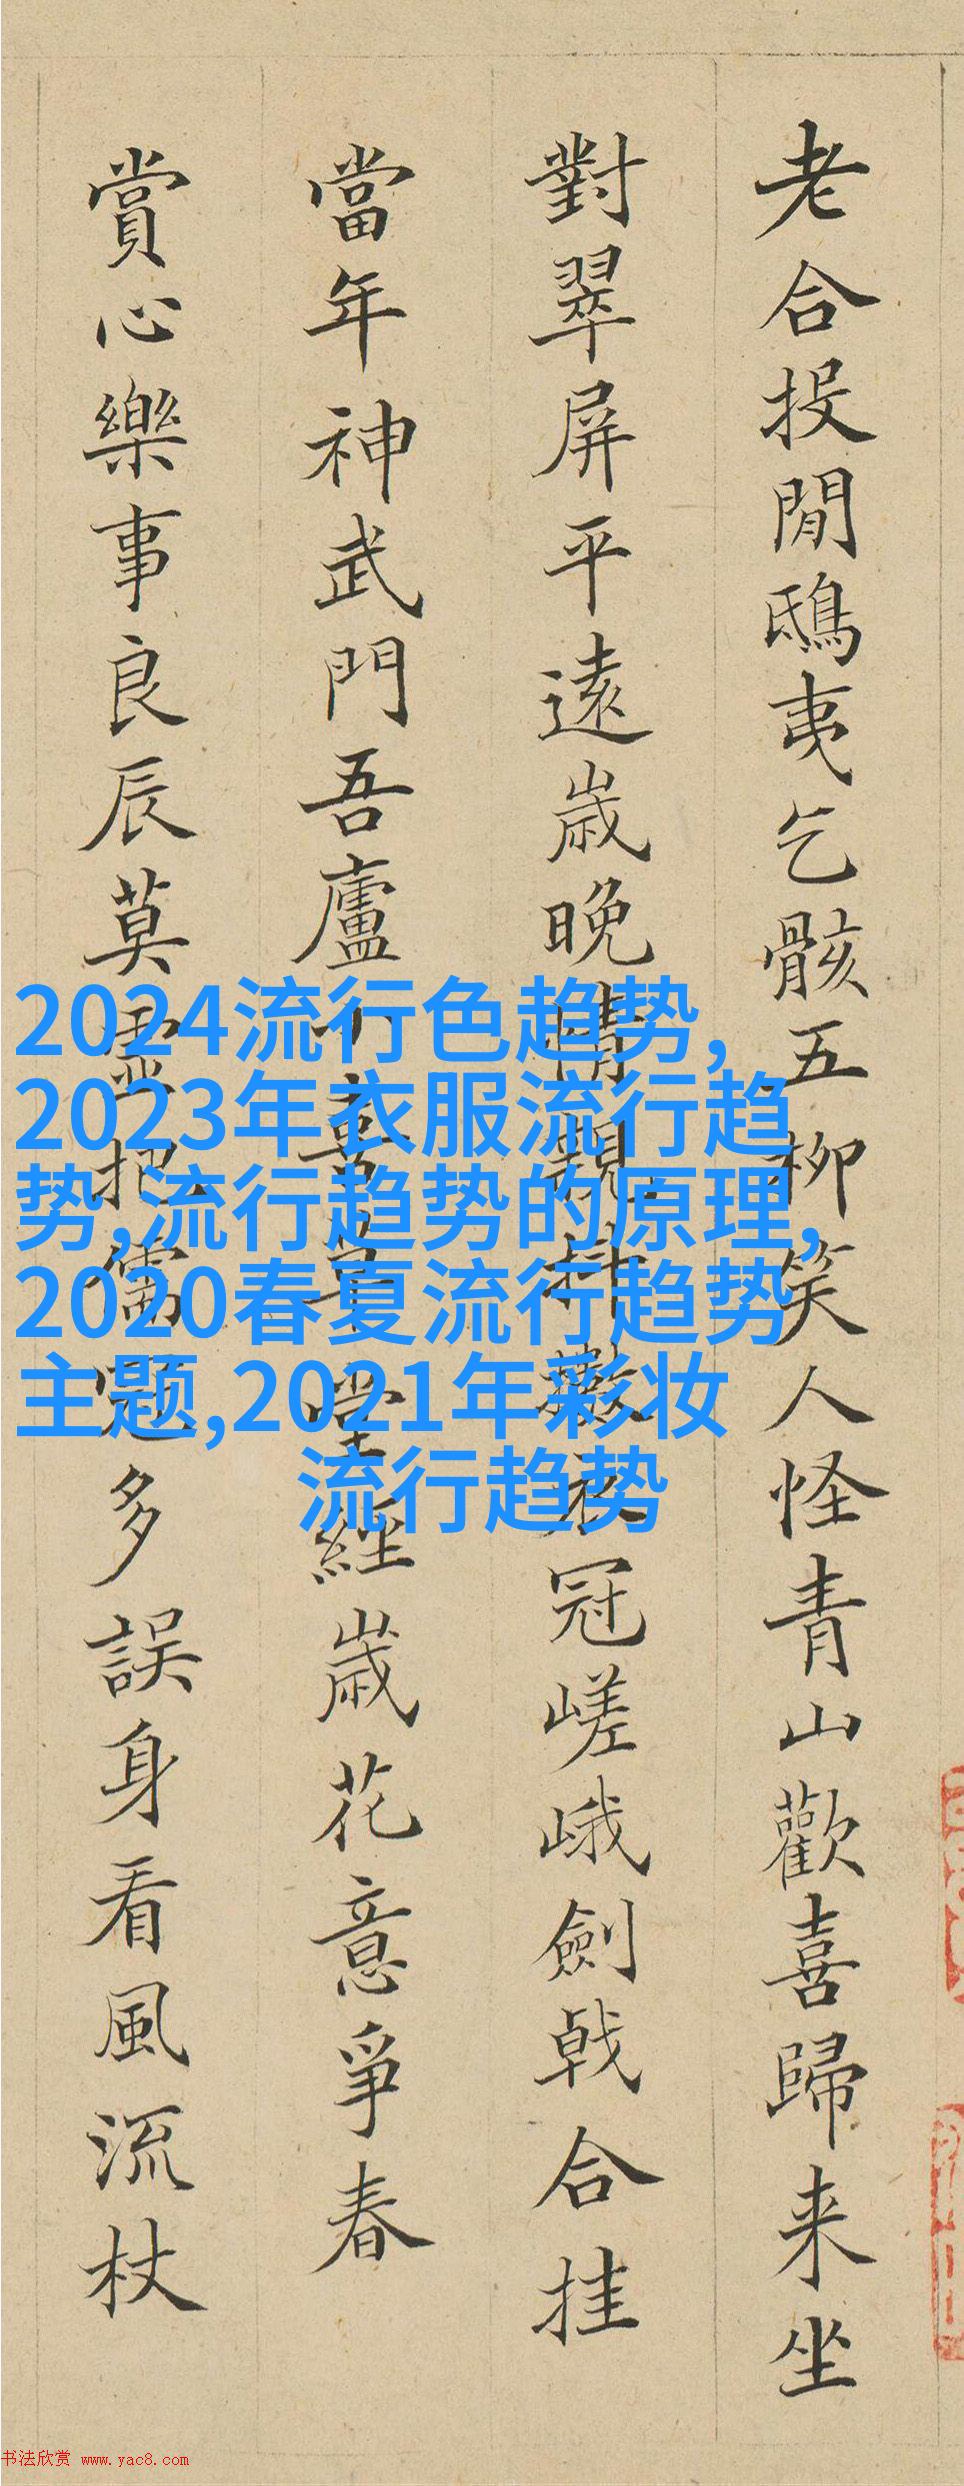 老合投閒鴟夷乞骸五柳笑人怪青山歡喜歸来坐
對翠屏平遠歲晚情親抖擻衣冠嵯峨劍戟合挂
當年神武門吾廬堂經歲花意爭春
賞心樂事良辰莫虛把儒冠多誤身看風流杖
2024流行色趋势,
2023年衣服流行趋
势,流行趋势的原理,
2020春夏流行趋势
主题,2021年彩妆
流行趋势
书法欣赏 www.yac8.com